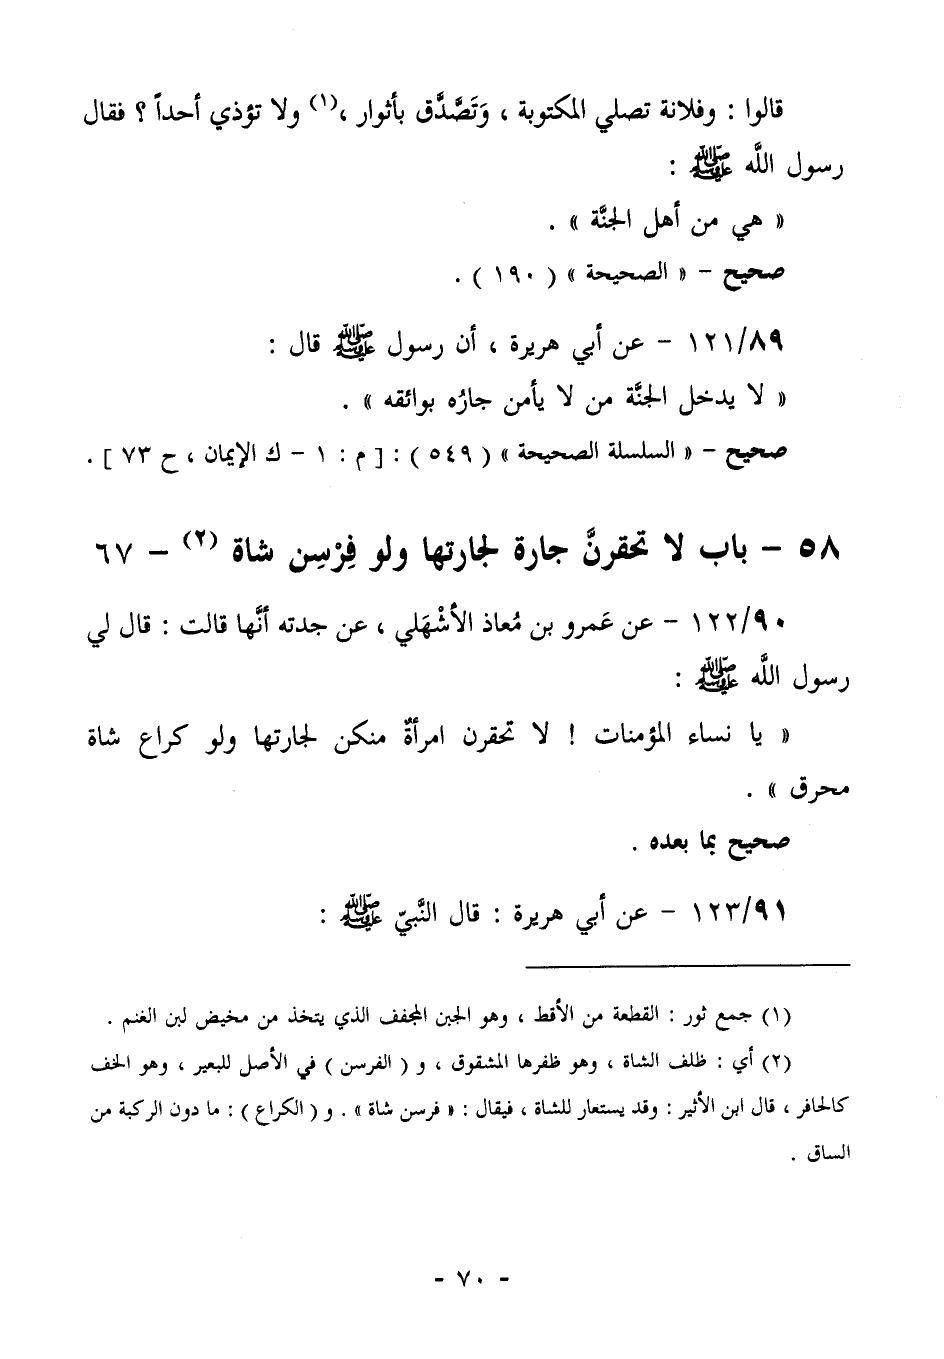 قالوا : وفلانة تصلي المكتوبة ، وَتَصَّدَّق بأثوار ،(١) ولا تؤذي أحداً ؟ فقال
رسول اللَّه ﷺ :
« هي من أهل الجنَّة » .
صحيح – « الصحيحة » ( ١٩٠ ) .
١٢١/٨٩ – عن أبي هريرة ، أن رسول ﷺ قال :
« لا يدخل الجنَّة من لا يأمن جارُه بوائقه » .
صحيح – « السلسلة الصحيحة » ( ٥٤٩ ) : [ م : ١ – ك الإيمان ، ح ٧٣ ] .
٥٨ – باب لا تحقرنَّ جارة لجارتها ولو فِرْسِن شاة (٢) – ٦٧
١٢٢/٩٠ – عن عَمرو بن مُعاذ الأشْهَلي ، عن جدته أنَّها قالت : قال لي
رسول اللَّه ﷺ :
« يا نساء المؤمنات ! لا تحقرن امرأةٌ منكن لجارتها ولو كراع شاة
محرق » .
صحيح بما بعده .
١٢٣/٩١ – عن أبي هريرة : قال النَّبيّ ﷺ :
(١) جمع ثور : القطعة من الأقط ، وهو الجبن المجفف الذي يتخذ من مخيض لبن الغنم .
(٢) أي : ظلف الشاة ، وهو ظفرها المشقوق ، و ( الفرسن ) في الأصل للبعير ، وهو الخف
كالحافر ، قال ابن الأثير : وقد يستعار للشاة ، فيقال : « فرسن شاة » . و ( الكراع ) : ما دون الركبة من
الساق .
- ٧٠ -